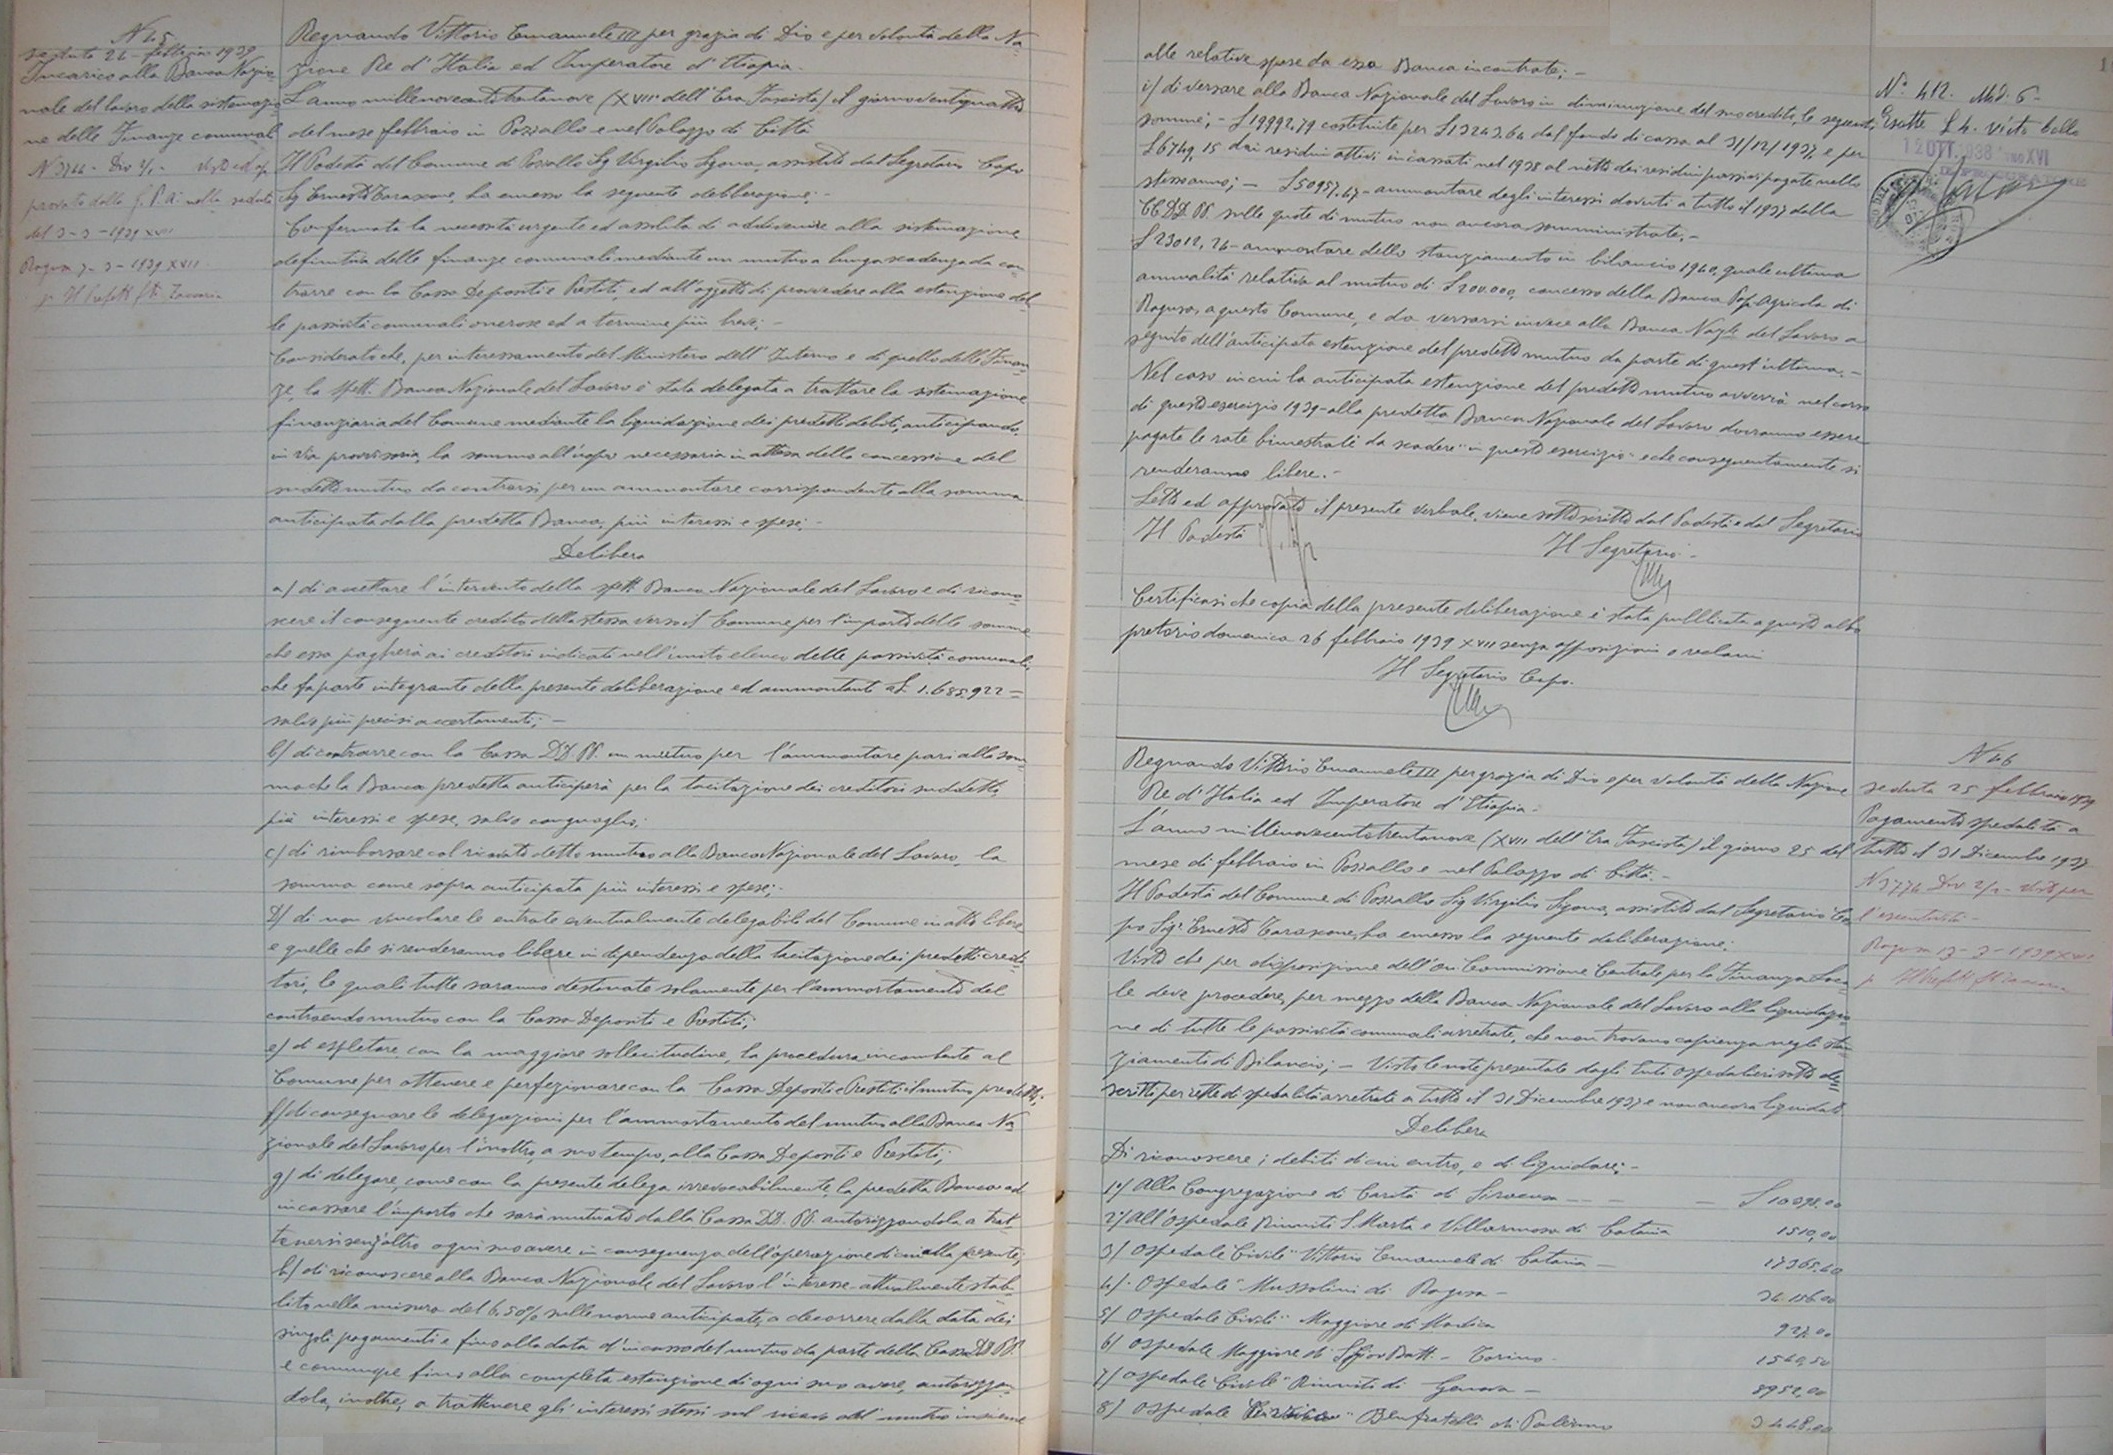 N 45
seduta 24 febbraio 1939
Incarico alla Banca Nazio
nale del lavoro della sistemazio
ne delle Finanze comunali
N 3744 - Div 2/1 - Visto ed ap
provato dalla G. P. A. nella seduta
del 3-3-1939 XVII
Ragusa 7-3-1939 XVII
p. Il Prefetto
Regnando Vittorio Emanuele III per grazia di Dio e per volontà della Na
zione Re d'Italia ed Imperatore d'Etiopia.
L'anno millenovecentotrentanove (XVII dell'Era Fascista) il giorno ventiquattro
del mese febbraio in Pozzallo e nel Palazzo di Città
Il Podestà del Comune di Pozzallo Sig Virgilio Sgona, assistito dal Segretario Capo
Sig Ernesto Tarascone, ha emesso la seguente deliberazione:-
Confermata la necessità urgente ed assoluta di addivenire alla sistemazione
definitiva delle finanze comunali mediante un mutuo a lunga scadenza da con
trarre con la Cassa Depositi e Prestiti, ed all'oggetto di provvedere alla estenzione del
le passività comunali onerose ed a termine più breve;-
Considerato che, per interessamento del Ministero dell'Interno e di quello delle Finan
ze, la spett. Banca Nazionale del Lavoro è stata delegata a trattare la sistemazione
finanziaria del Comune mediante la liquidazione dei predetti debiti, anticipando,
in via provvisoria, la somma all'uopo necessaria in attesa della concessione del
sudetto mutuo da contrarsi per un ammontare corrispondente alla somma
anticipata dalla predetta Banca, più interessi e spese;-
Delibera
a) di accettare l'intervento della spett. Banca Nazionale del Lavoro e di ricono
scere il conseguente credito della stessa verso il Comune per l'importo delle somme
che essa pagherà ai creditori indicati nell'unito elenco delle passività comunali,
che fa parte integrante della presente deliberazione ed ammontante a £. 1.685.922=
salvo più precisi accertamenti;-
b) di contrarre con la Cassa DD.PP. un mutuo per l'ammontare pari alla som
ma che la Banca predetta anticiperà per la tacitazione dei creditori suddetti,
più interessi e spese, salvo conguaglio;
c) di rimborsare col ricavato detto mutuo alla Banca Nazionale del Lavoro, la
somma come sopra anticipata più interessi e spese;-
D) di non vincolare le entrate eventualmente delegabili del Comune in atto libere
e quelle che si renderanno libere in dipendenza della tacitazione dei predetti credi
tori, le quali tutte saranno destinate solamente per l'ammortamento del
contraendo mutuo con la Cassa Depositi e Prestiti;
e) di espletare, con la maggiore sollecitudine, la procedura incombente al
Comune per ottenere e perfezionare con la Cassa Depositi e Prestiti il mutuo predetto;
f) di consegnare le delegazioni per l'ammortamento del mutuo alla Banca Na
zionale del Lavoro per l'inoltro, a suo tempo, alla Cassa Depositi e Prestiti;
g) di delegare, come con la presente delega irrevocabilmente, la predetta Banca ad
incassare l'importo che sarà mutuato dalla Cassa DD. PP. autorizzandola a trat
tenersi senz'altro ogni suo avere in conseguenza dell'operazione di cui alla presente;
h) di riconoscere alla Banca Nazionale del Lavoro l'interesse attualmente stabi
lito nella misura del 6,50% sulle somme anticipate, a decorrere dalla data dei
singoli pagamenti e fino alla data d'incasso del mutuo da parte della Cassa DD PP.
e comunque fino alla completa estenzione di ogni suo avere, autorizzan
dola, inoltre, a trattenere gli interessi stessi sul ricavo del mutuo insieme
alle relative spese da essa Banca incontrate;-
i) di versare alla Banca Nazionale del Lavoro in diminuzione del suo credito, le seguenti
somme;- £ 19992,79 costituite per £ 13243,64 dal fondo di cassa al 31/12/1937, e per
£ 6749,15 dai residui attivi incassati nel 1938 al netto dei residui passivi pagati nello
stesso anno;- £ 50957,67 - ammontare degli interessi dovuti a tutto il 1937 dalla
CC.DD.PP. sulle quote di mutuo non ancora somministrate;-
£ 23012,26 - ammontare dello stanziamento in bilancio 1940, quale ultima
annualità relativa al mutuo di £ 200.000, concesso della Banca Pop. Agricola di
Ragusa, a questo Comune, e da versarsi invece alla Banca Nazle del Lavoro a
seguito dell'anticipata estenzione del predetto mutuo da parte di quest'ultima.-
Nel caso in cui la anticipata estenzione del predetto mutuo avverrà nel corso
di questo esercizio 1939 - alla predetta Banca Nazionale del Lavoro dovranno essere
pagate le rate bimestrali da scadere in questo esercizio e che conseguentemente si
renderanno libere.-
Letto ed approvato il presente verbale, viene sottoscritto dal Podestà e dal Segretario
Il Podestà
Il Segretario-
Certificasi che copia della presente deliberazione è stata pubblicata a questo albo
pretorio domenica 26 febbraio 1939 XVII senza opposizioni o reclami
Il Segretario Capo.
N° 412. Mod. 6-
Esatte £ 4. visto bollo
12 OTT. 1938 Anno XVI
IL PROCURATORE
N 46
seduta 25 febbraio 1939
Pagamento spedalità a
tutto il 31 Dicembre 1937
N 3774 Div 2/1 - Visto per
l'esecutività-
Ragusa 13-3-1939 XVII
p. Il Prefetto
Regnando Vittorio Emanuele III per grazia di Dio e per volontà della Nazione
Re d'Italia ed Imperatore d'Etiopia-
L'anno millenovecentotrentanove (XVII dell'Era Fascista) il giorno 25 del
mese di febbraio in Pozzallo e nel Palazzo di Città.-
Il Podestà del Comune di Pozzallo Sig Virgilio Sgona, assistito dal Segretario Ca
po Sigr Ernesto Tarascone, ha emesso la seguente deliberazione:
Visto che per disposizione dell'On Commissione Centrale per la Finanza Loca
le deve procedere, per mezzo della Banca Nazionale del Lavoro alla liquidazio
ne di tutte le passività comunali arretrate, che non trovano capienza negli stan
ziamenti di Bilancio;- Viste le note presentate dagli Enti Ospedalieri sotto de
scritti per rette di spedalità arretrate a tutto il 31 Dicembre 1937 e non ancora liquidate
Delibera
Di riconoscere i debiti di cui entro, e di liquidare:-
1°) Alla Congregazione di Carità di Siracusa - - - - £ 10898.00
2°) All'Ospedale Riuniti S. Marta e Villarmosa di Catania 1510,00
3) Ospedale Civile "Vittorio Emanuele di Catania - 17365.60
4) - Ospedale "Mussolini di Ragusa - 34.186.00
5) Ospedale Civile "Maggiore di Modica 927.00
6) Ospedale Maggiore di S. Giov Batt. - Torino - 1540,50
7) Ospedale Civile "Riuniti di Genova - 8952,00
8) Ospedale "Benfratelli di Palermo 3448.00